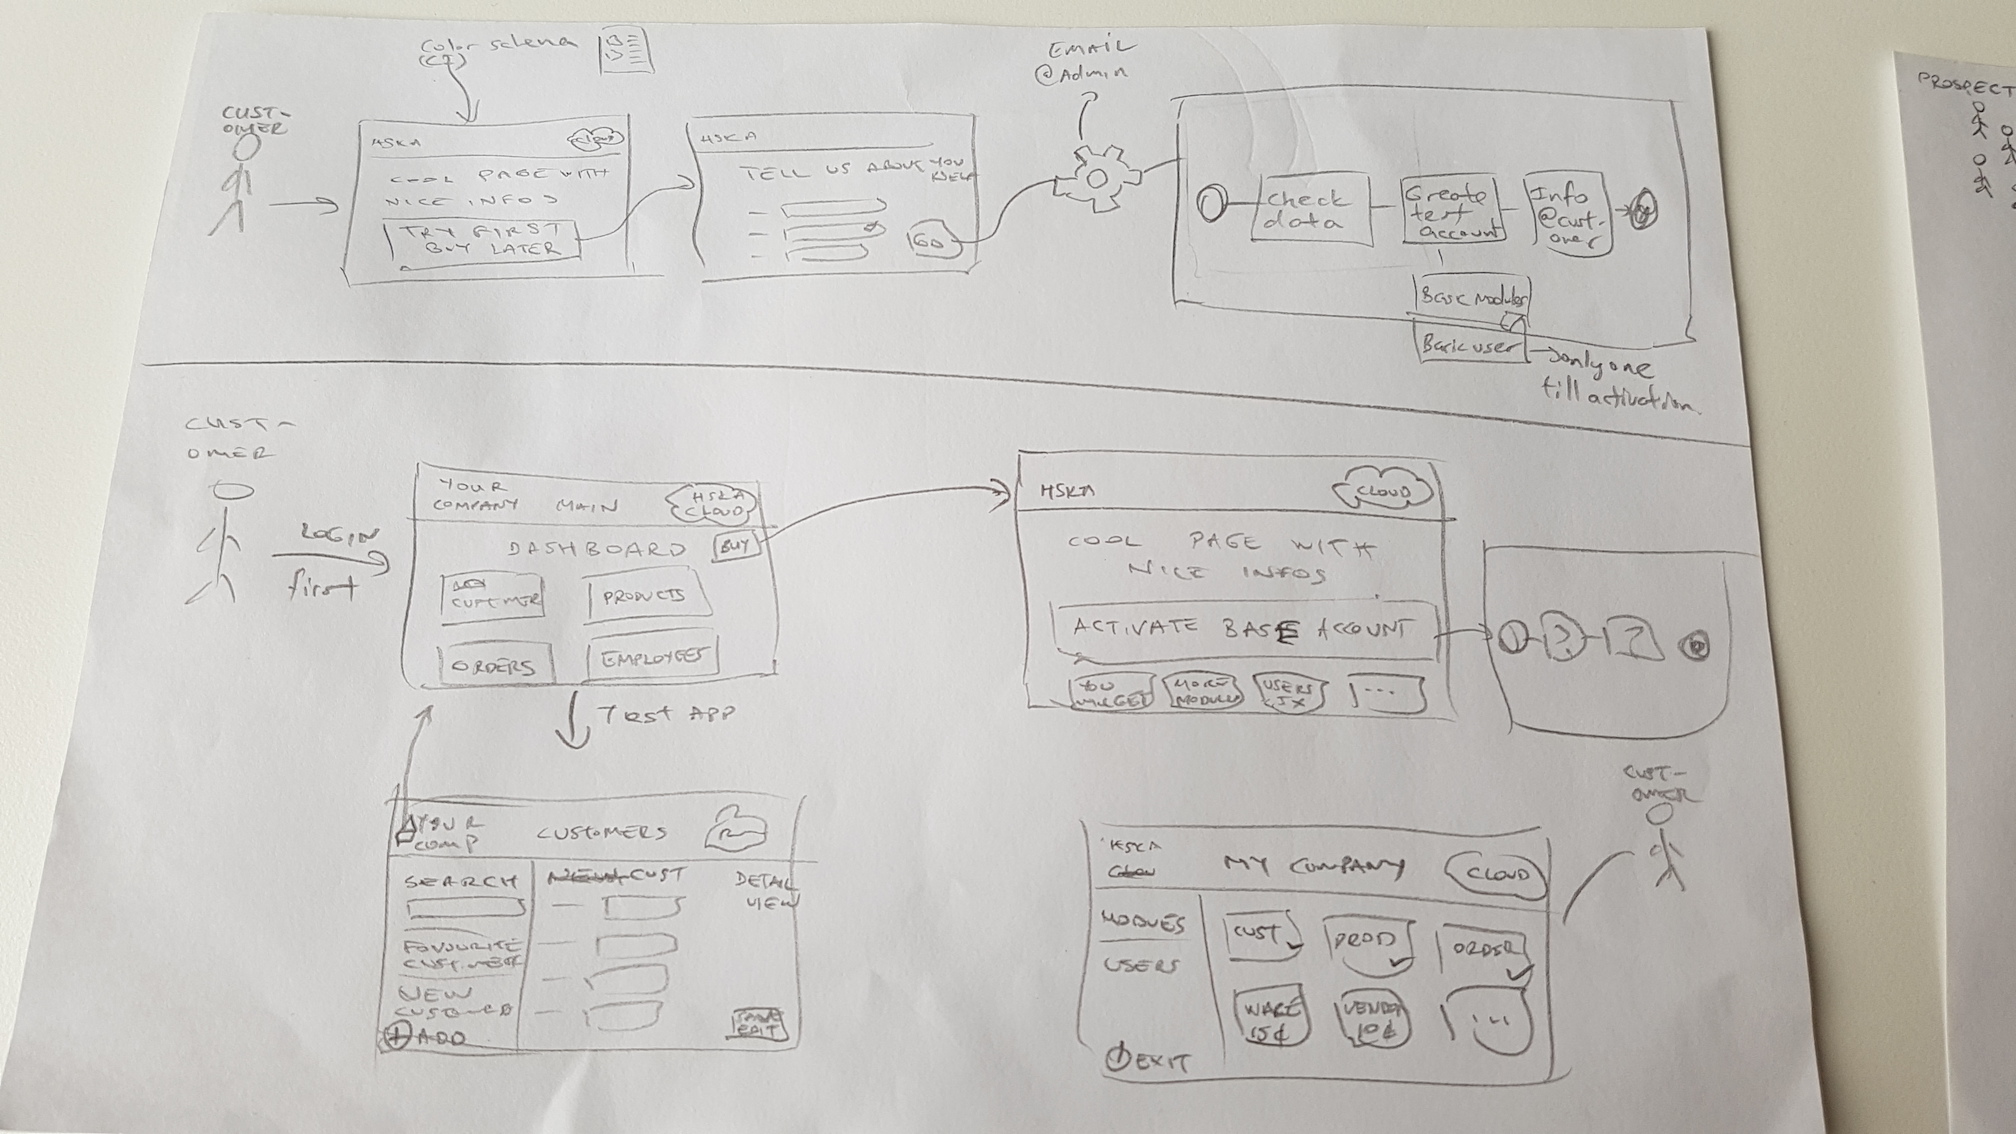 Color schema
(CI)
CUST-
OMER
HSKA
cloud
COOL PAGE WITH
NICE INFOS
TRY FIRST
BUY LATER
HSKA
TELL US ABOUT YOU
GO
EMAIL
@Admin
check
data
Create
test
account
Info
@cust-
omer
Basic Modules
Basic user
only one
till activation.
PROSPECT
CUST-
OMER
LOGIN
first
YOUR
COMPANY MAIN
HSKA
CLOUD
DASHBOARD
BUY
CUSTOMER
PRODUCTS
ORDERS
EMPLOYEES
Test APP
HSKA
CLOUD
COOL PAGE WITH
NICE INFOS
ACTIVATE BASE ACCOUNT
YOU
MORE
MODULES
USERS
...
?
?
YOUR
COMP
CUSTOMERS
SEARCH
NEW CUST
DETAIL
VIEW
FAVOURITE
CUSTOMER
NEW
CUSTOMER
+ ADD
SAVE
EDIT
CUST-
OMER
HSKA
MY COMPANY
CLOUD
MODULES
USERS
CUST
PROD
ORDER
WARE
15€
VENDOR
10€
...
EXIT